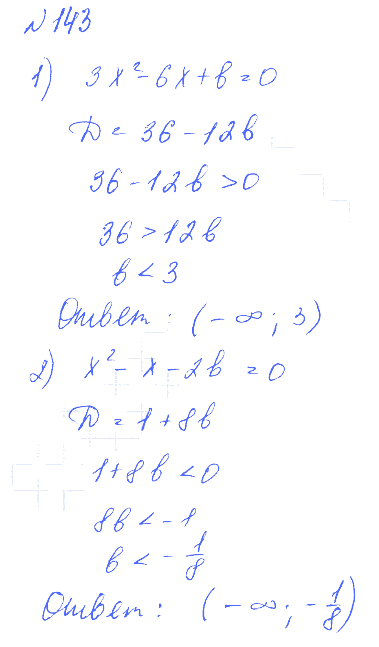 №143
1) 3x² - 6x + b = 0
D = 36 - 12b
36 - 12b > 0
36 > 12b
b < 3
Ответ: (-∞; 3)
2) x² - x - 2b = 0
D = 1 + 8b
1 + 8b < 0
8b < -1
b < -1/8
Ответ: (-∞; -1/8)